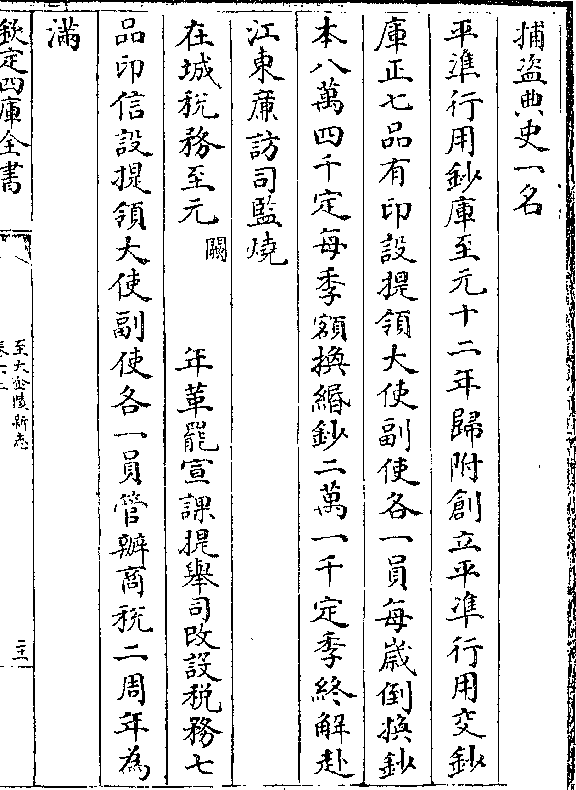 捕盗典史一名
平準行用鈔庫至元十二年歸附創立平準行用交鈔
庫正七品有印設提領大使副使各一員每歲倒換鈔
本八萬四千定每季額換緡鈔二萬一千定季終解赴
江東廉訪司監燒
在城税務至元闕年革罷宣課提舉司改設税務七
品印信設提領大使副使各一員管辦商税二周年為
滿
欽定四庫全書
至大金陵新志